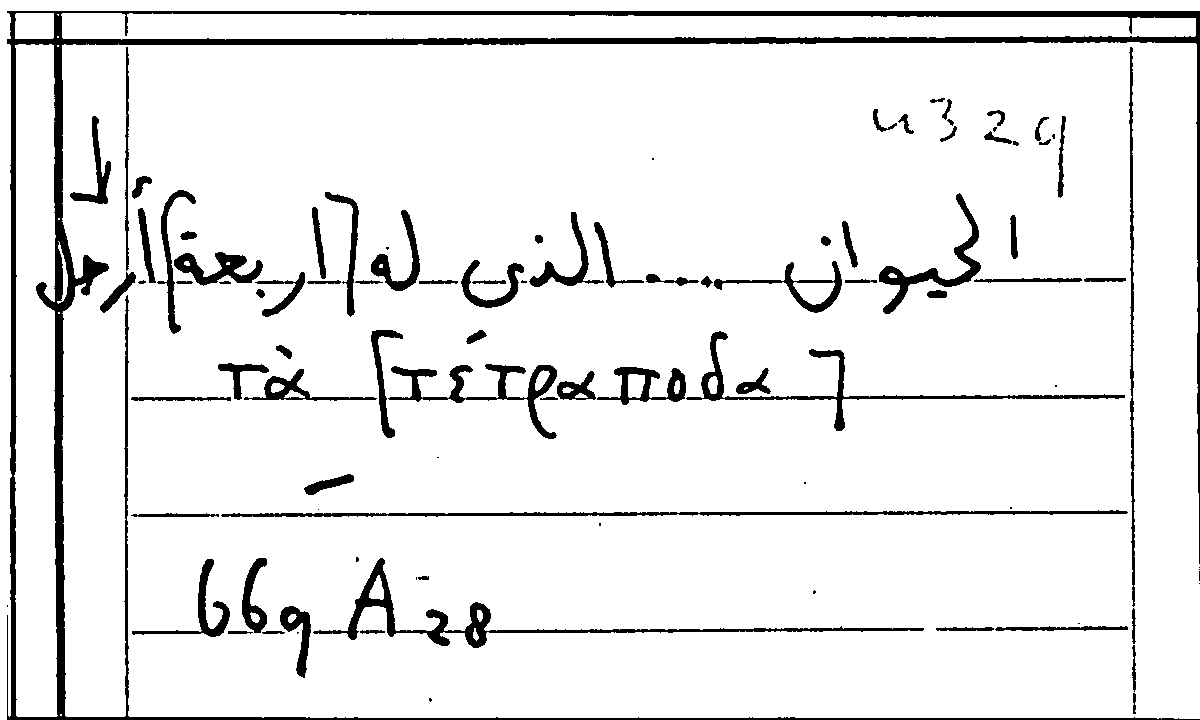 الحيوان .... الذى له ⌈اربعة⌉ أرجل
τὰ ⌈τέτραποδα⌉
669 A 28